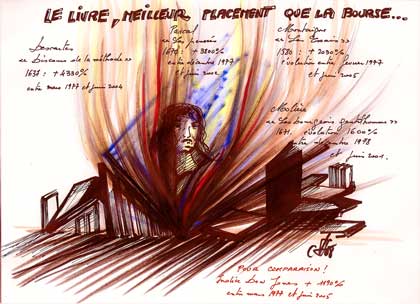 LE LIVRE, MEILLEUR PLACEMENT QUE LA BOURSE...
Descartes
« Discours de la méthode »
1637 : + 4330%
entre mars 1977 et juin 2004
Pascal
« Les pensées »
1670 : + 3800%
entre décembre 1977
et juin 2002
Montaigne
« Les Essais »
1580 : + 2030%
évolution entre février 1977
et juin 2005
Molière
« Le bourgeois gentilhomme »
1671, évolution 1600%
entre décembre 1978
et juin 2001.
POUR COMPARAISON !
Indice Dow Jones + 1190%
entre mars 1977 et juin 2005